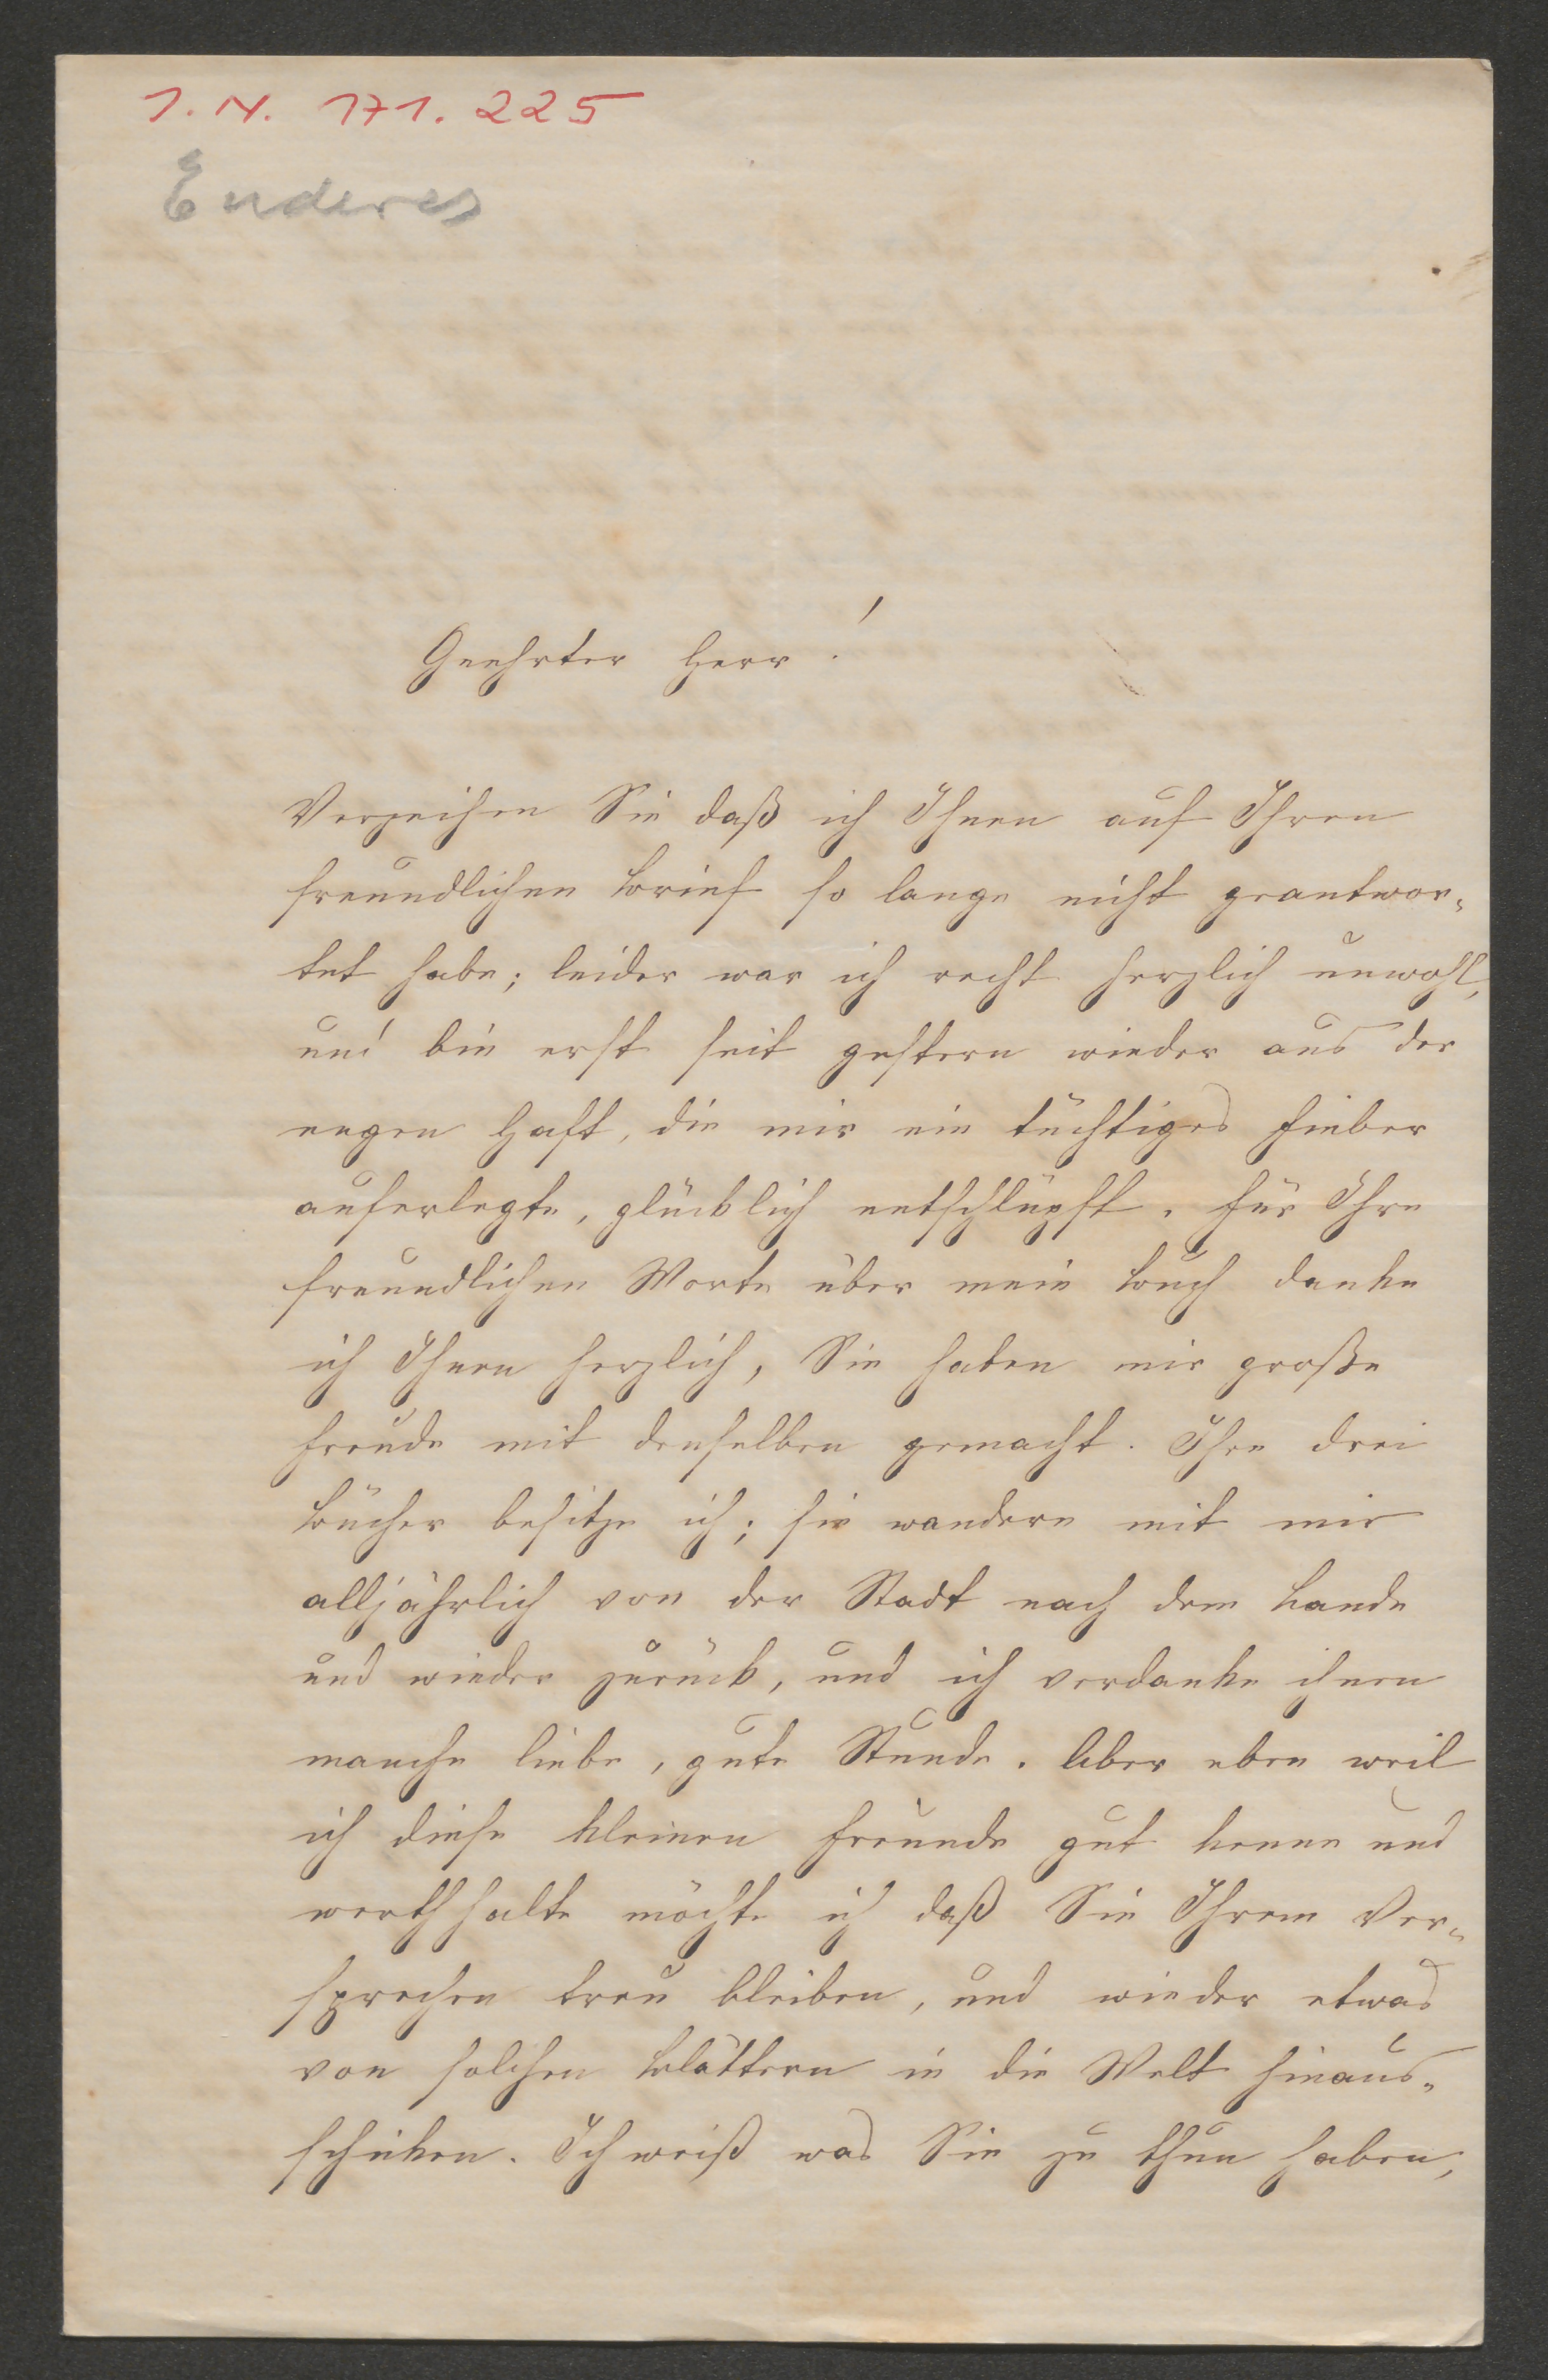 I. N. 171.225
Enderes
Geehrter Herr!
Verzeihen Sie daß ich Ihnen auf Ihren
freundlichen Brief so lange nicht geantwor-
tet habe; leider war ich recht herzlich unwohl,
und bin erst seit gestern wieder aus der
engen Haft, die mir ein tüchtiges Fieber
auferlegte, glücklich entschlüpft. Für Ihre
freundlichen Worte über mein Buch danke
ich Ihnen herzlich, Sie haben mir große
Freude mit denselben gemacht. Ihre drei
Bücher besitze ich; sie wandern mit mir
alljährlich von der Stadt nach dem Lande
und wieder zurück, und ich verdanke ihnen
manche liebe, gute Stunde. Aber eben weil
ich diese kleinen Freunde gut kenne und
werth halte möchte ich daß Sie Ihrem Ver-
sprechen treu bleiben, und wieder etwas
von solchen Blättern in die Welt hinaus-
schicken. Ich weiß was Sie zu thun haben,